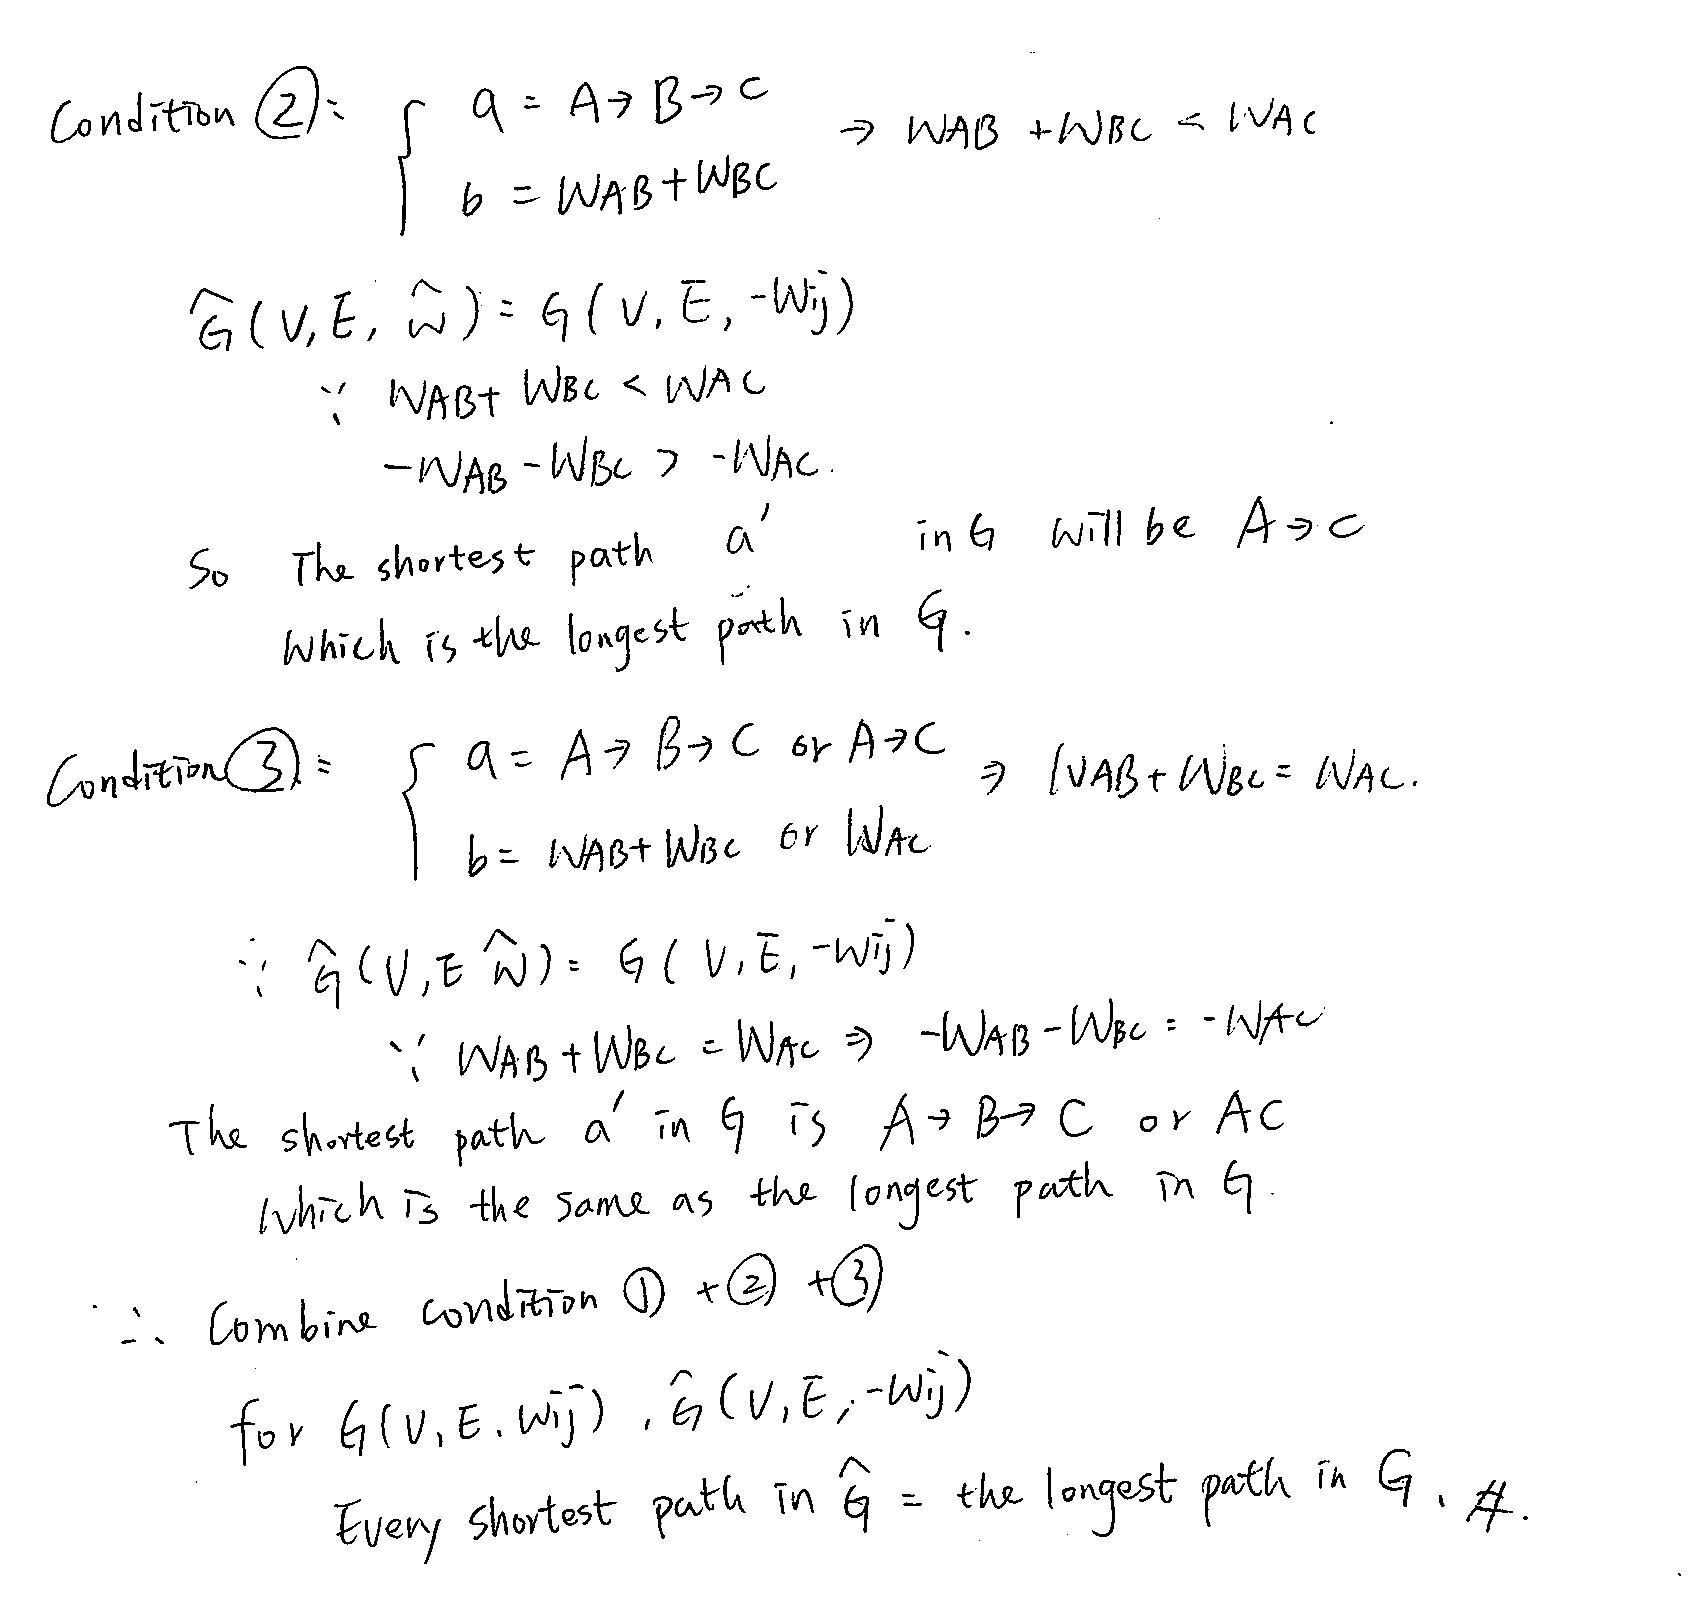 Condition ②: { a = A → B → C
b = WAB + WBC
→ WAB + WBC < WAC
Ĝ(V, E, ŵ) = G(V, E, -Wij)
∵ WAB + WBC < WAC
-WAB - WBC > -WAC.
So The shortest path a' in G will be A → C
Which is the longest path in G.
Condition ③: { a = A → B → C or A → C
b = WAB + WBC or WAC
⇒ WAB + WBC = WAC.
∵ Ĝ(V, E ŵ) = G(V, E, -Wij)
∵ WAB + WBC = WAC ⇒ -WAB - WBC = -WAC
The shortest path a' in G is A → B → C or AC
Which is the same as the longest path in G.
∴ Combine condition ① + ② + ③
for G(V, E, Wij), Ĝ(V, E, -Wij)
Every shortest path in Ĝ = the longest path in G. #.